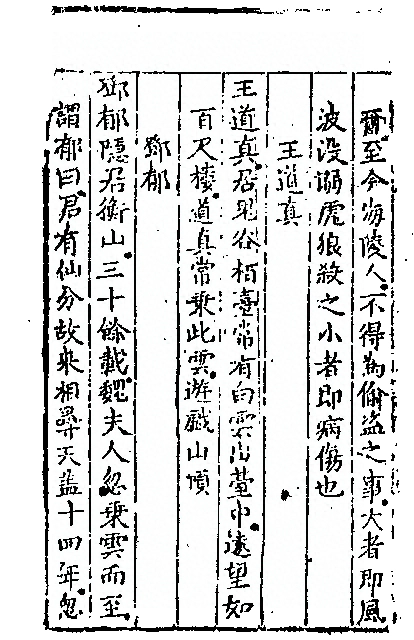 爾至今海陵人不得為偷盜之事大者即風
波沒溺虎狼殺之小者即病傷也
王道真
王道真居鬼谷栢臺常有白雲出臺中遠望如
百尺樓道真常乗此雲遊戯山頂
鄧郁
鄧郁隱居衡山三十餘載魏夫人忽乗雲而至
謂郁曰君有仙分故來相尋天監十四年忽